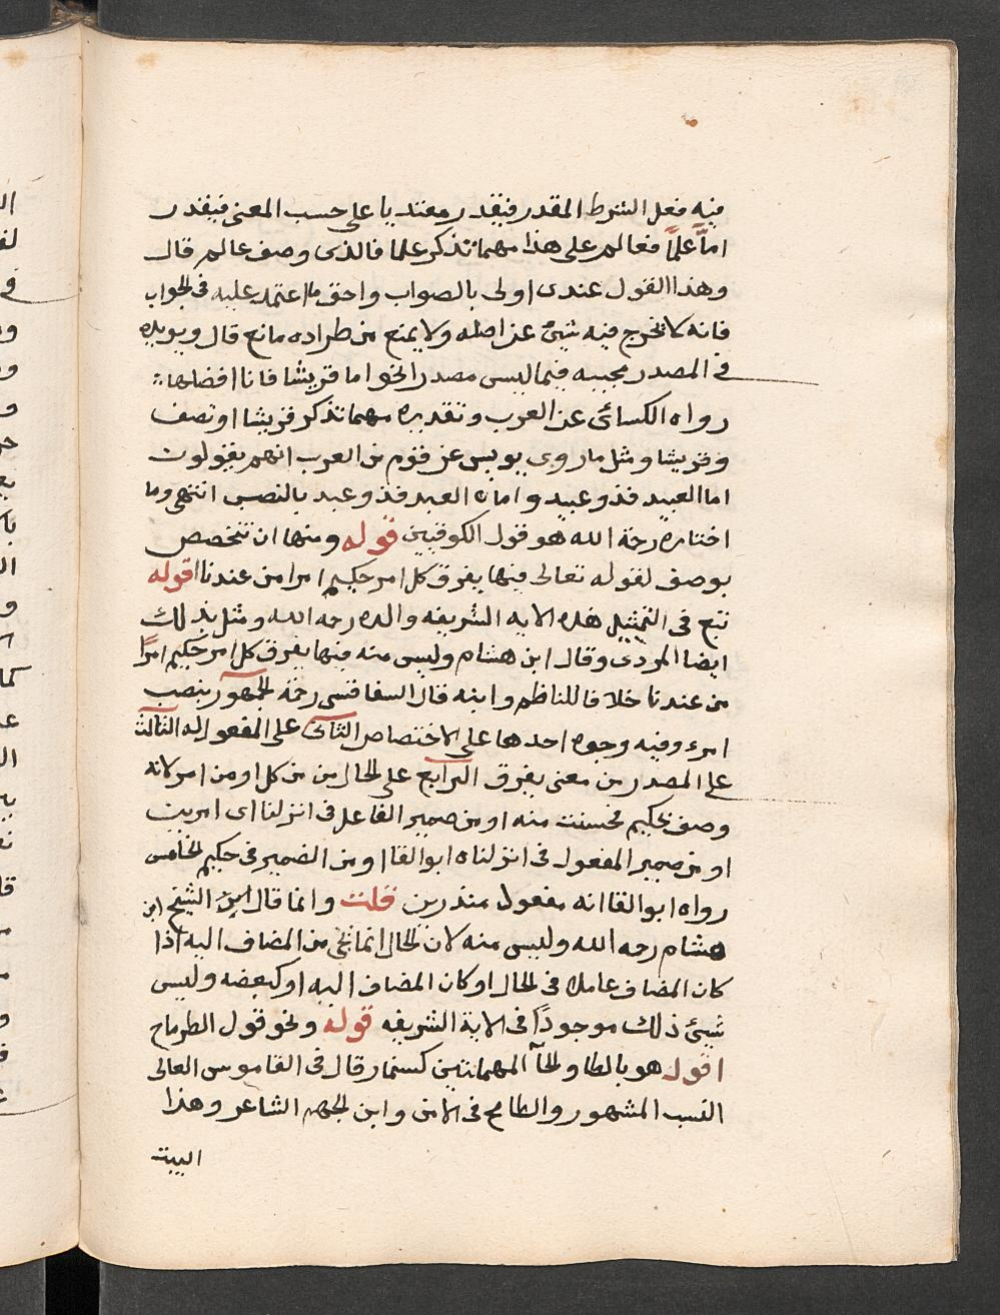 فيه فعل الشرط المقدر فيقدر معتديا على حسب المعنى فيقدر
اما علما فعالم على هذا مهما تذكر علما فالذي وصف عالم قال
وهذا القول عندى اولى بالصواب واحق ما اعتمد عليه فى الجواب
فانه لا يخرج فيه شيئ عن اصله ولا يمنع من طراده مانع قال ويويده
فى المصدر مجيبه فيما ليس مصدرا نحو اما قريشا فانا افضلها
رواه الكسائى عن العرب وتقديره مهما تذكر قريشا او تصف
وقريشا ومثل ما روى يونس عن قوم من العرب انهم يقولون
اما العبيد فذو عبيد واما العبد فذو عبد بالنصب انتهى وما
اختاره رحمة الله هو قول الكوفيين قوله ومنها ان تتخصص
بوصف لقوله تعالى فيها يفرق كل امر حكيم امرا من عندنا اقوله
تبع فى التمثيل هذه الايه الشريفه والده رحمه الله ومثل بذلك
ايضا المرادى وقال ابن هشام وليس منه فيها يفرق كل امر حكيم امرًا
من عندنا خلافا للناظم وابنه قال السفاقسى رحمة الجمهور بنصب
امرء وفيه وجوه احدها على الاختصاص الثانى على المفعول له الثالث
على المصدر من معنى يفرق الرابع على الحال من من كل او من امر لانه
وصف بحكيم فحسنت منه او من ضمير الفاعل فى انزلنا اى امرين
او من ضمير المفعول فى انزلناه ابو البقا او من الضمير فى حكيم الخامس
رواه ابو البقا انه مفعول منذرين قلت وانما قال الشيخ ابن
هشام رحمه الله وليس منه لان الحال انما تجئ من المضاف اليه اذا
كان المضاف عاملا فى الحال او كان المضاف اليه او كبعضه وليس
شيئ ذلك موجودًا فى الاية الشريفه قوله ونحو قول الطرماح
اقول هو بالطا والحآ المهملتين كسنمار قال فى القاموس العالى
النسب المشهور والطامح فى الامر وابن الجهم الشاعر وهذا
البيت